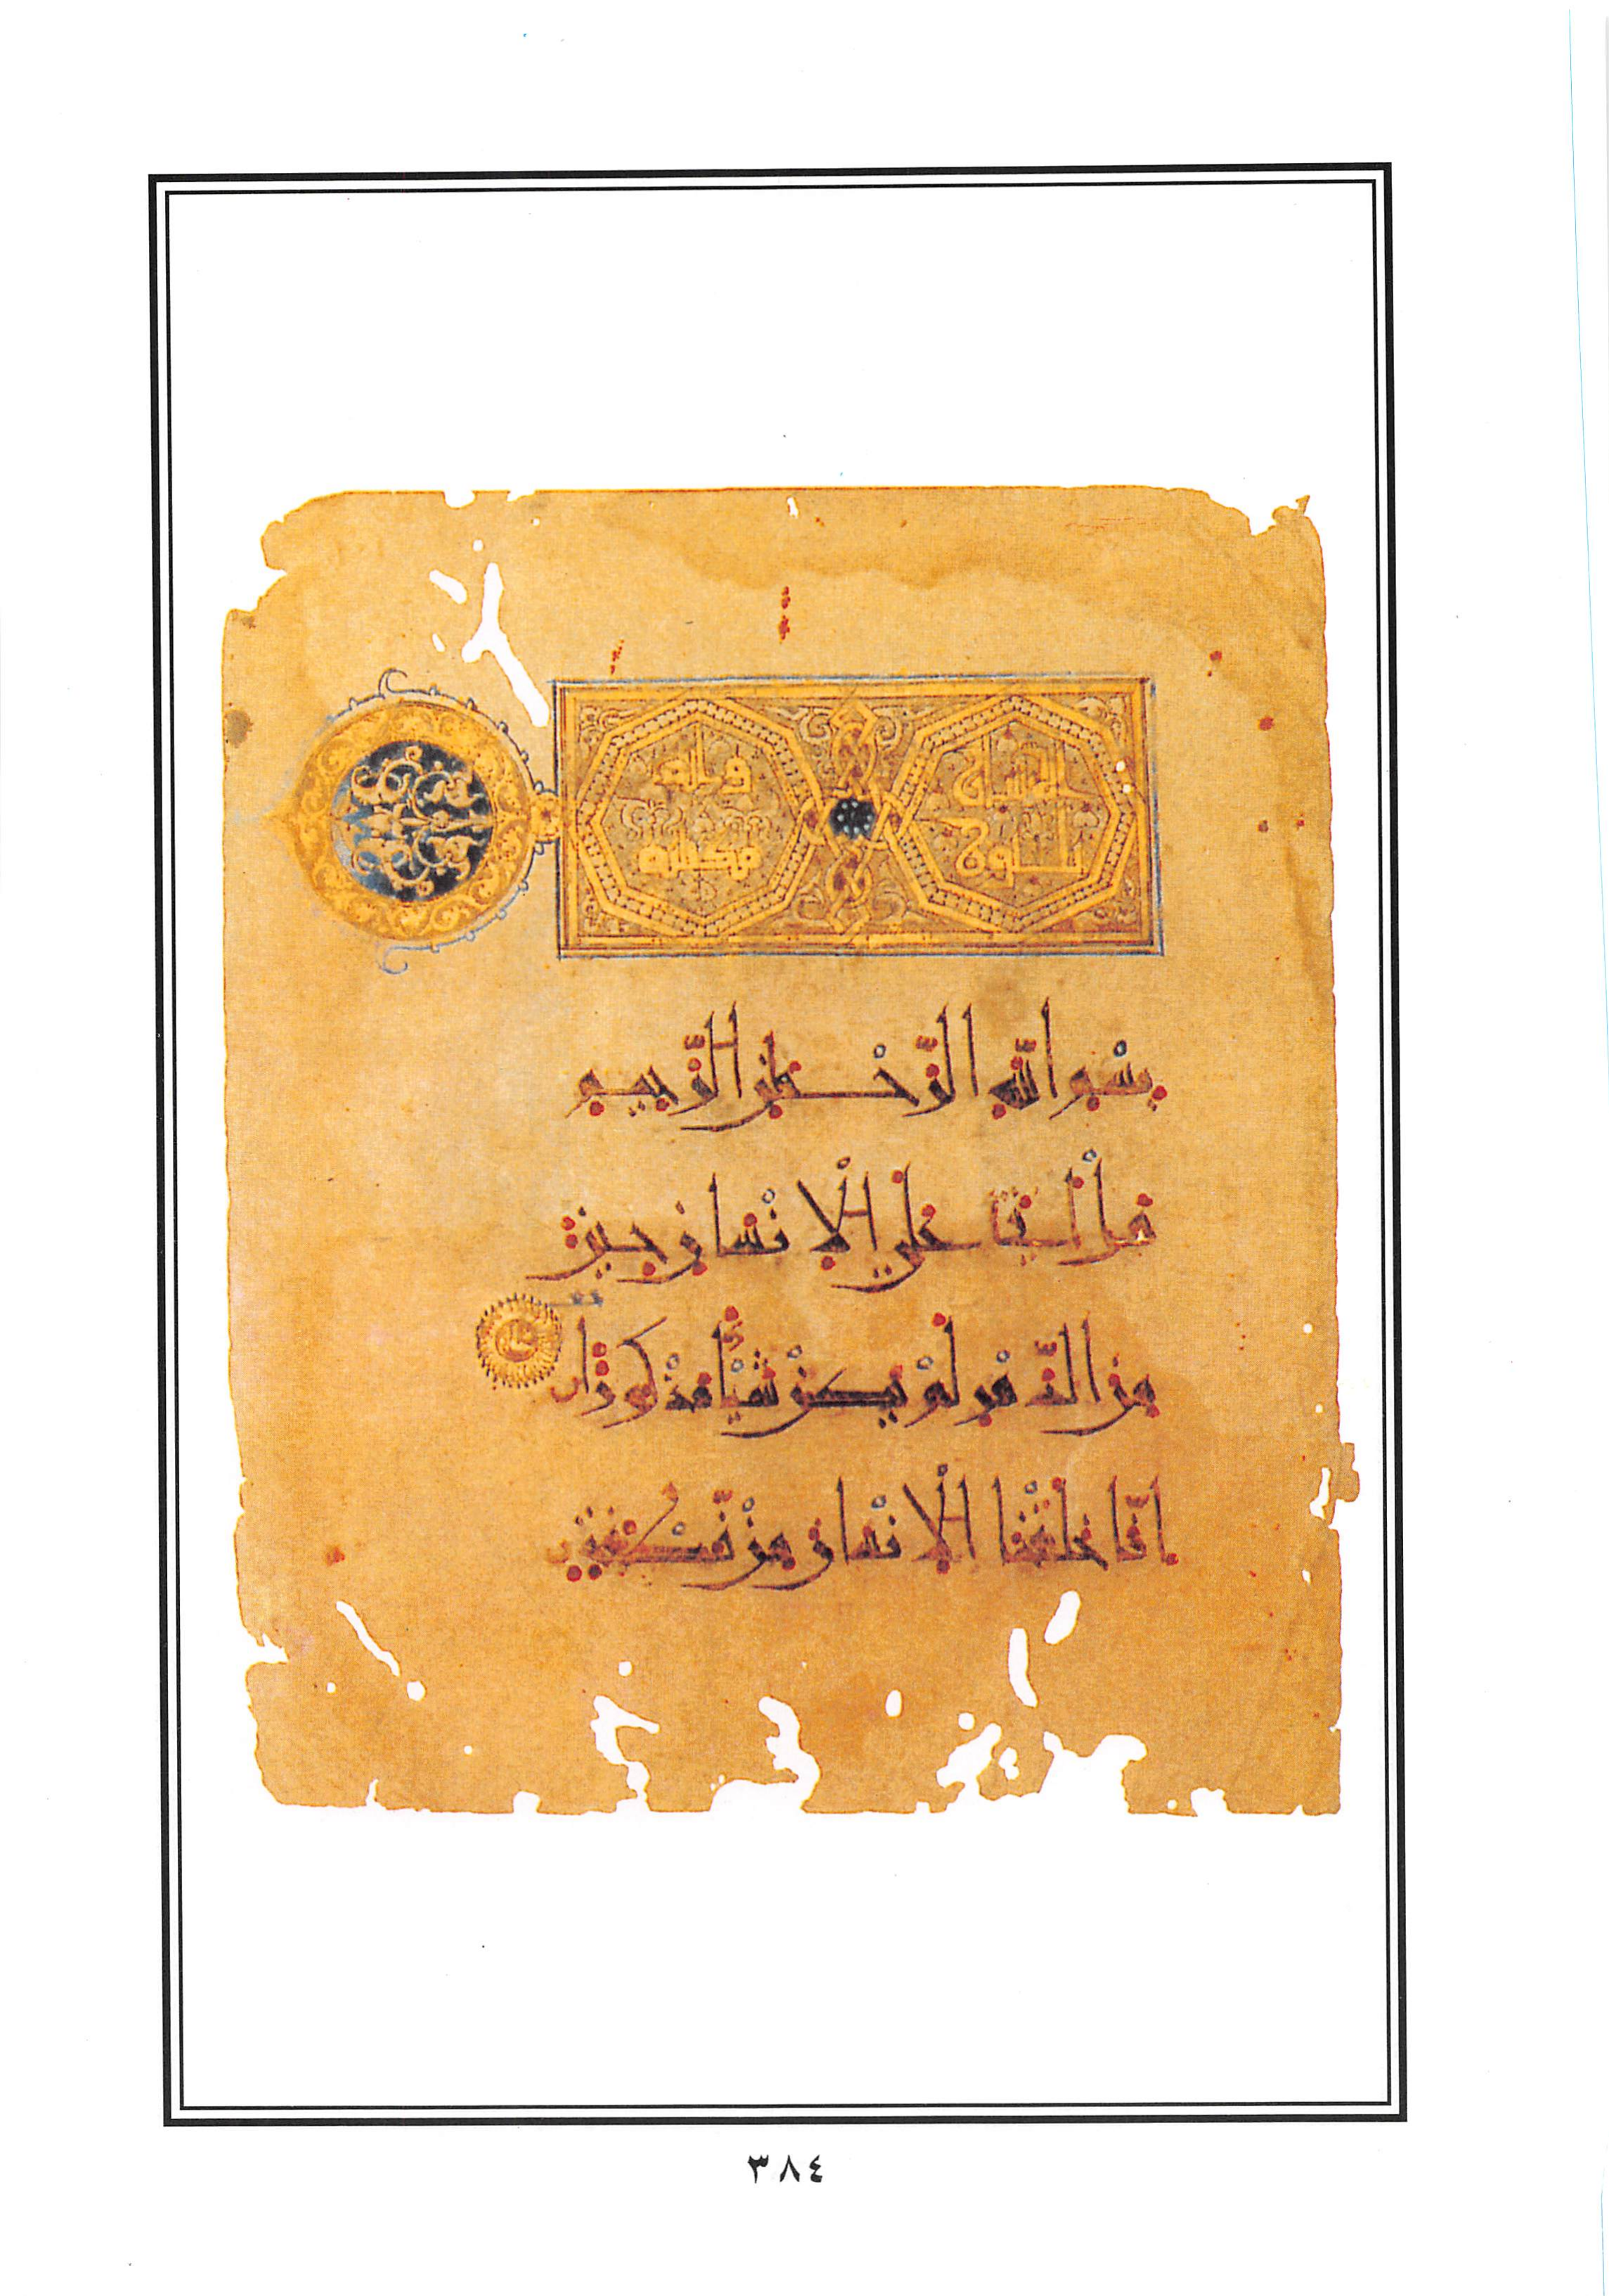 ثلثون
وايه
مكيه
بسم الله الرحمن الرحيم
هل أتى على الإنسان حين
من الدهر لم يكن شيئا مذكورا
إنا خلقنا الإنسان من نطفة
٣٨٤